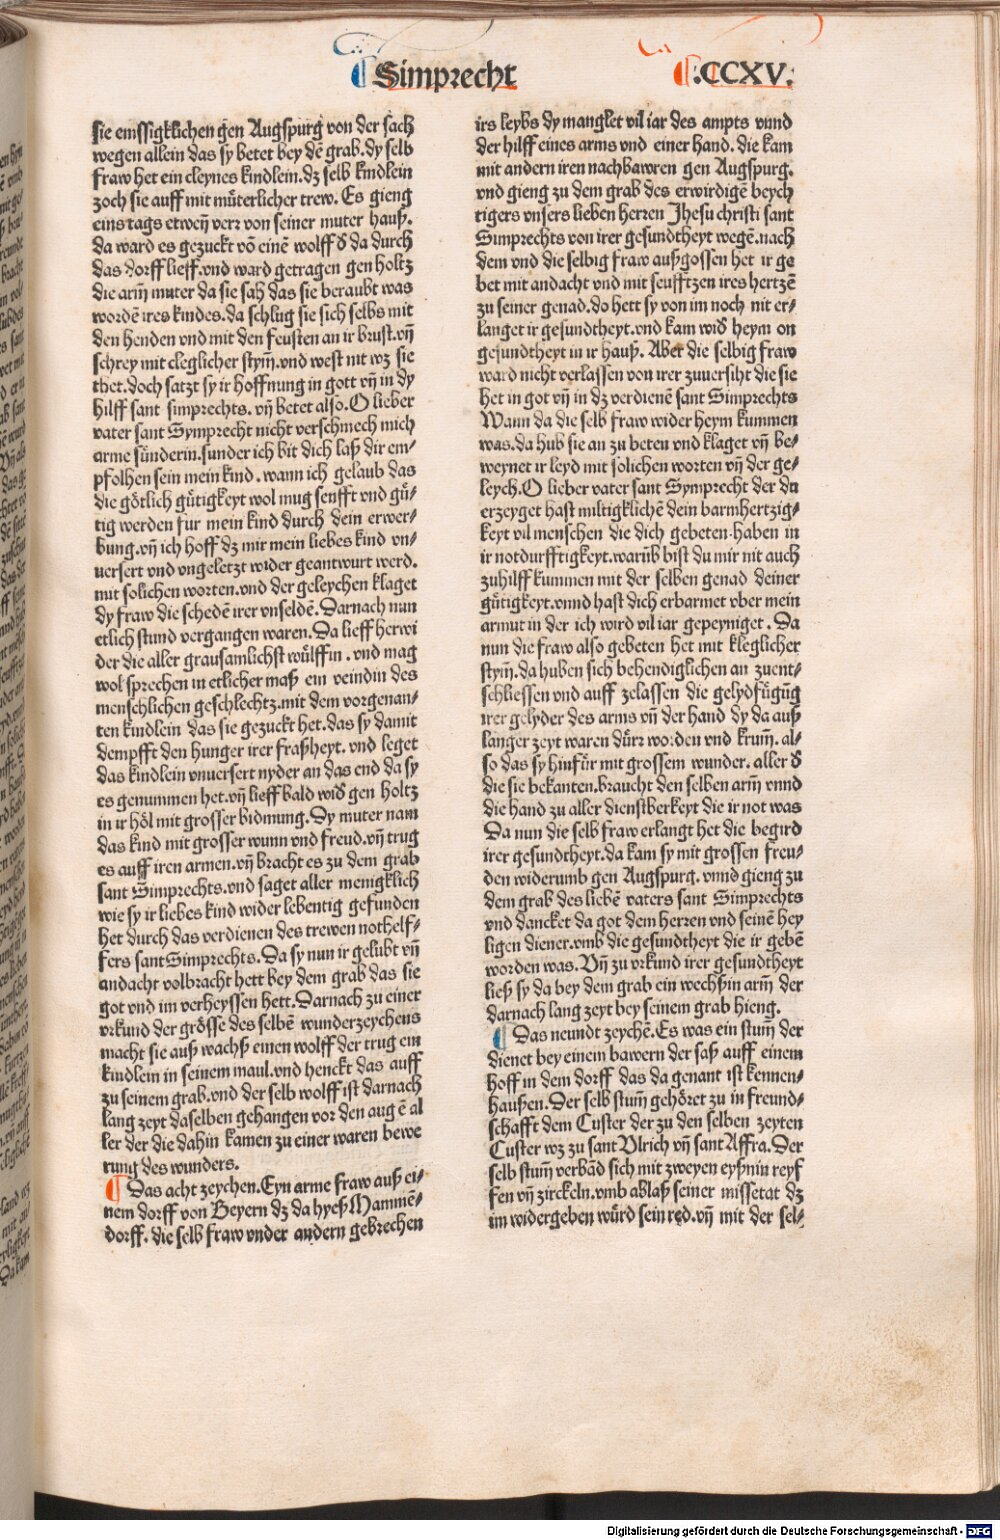 ¶Simprecht
¶.CCXV.
sie emssigklichen gen Augspurg von der sach
wegen allein das sy betet bey dē grab. dy selb
fraw het ein cleynes kindlein. dz selb kindlein
zoch sie auff mit můterlicher trew. Es gieng
eins tags etweñ verr von seiner muter hauß.
da ward es gezuckt võ einē wolff d̕ da durch
das dorff lieff. vnd ward getragen gen holtz
die arm̄ muter da sie sah das sie beraubt was
wordē ires kindes. da schlug sie sich selbs mit
den henden vnd mit den feusten an ir brust. vñ
schrey mit cleglicher stym̄. vnd west nit wz sie
thet. doch satzt sy ir hoffnung in gott vñ in dy
hilff sant simprechts. vñ betet also. O lieber
vater sant Symprecht nicht verschmech mich
arme sünderin. sunder ich bit dich laß dir em⸗
pfolhen sein mein kind. wann ich gelaub das
die götlich gütigkeyt wol mug senfft vnd gü⸗
tig werden fur mein kind durch dein erwer⸗
bung. vñ ich hoff dz mir mein liebes kind vn⸗
uersert vnd vngeletzt wider geantwurt werd.
mit solichen worten. vnd der geleychen klaget
dy fraw die schedē irer vnseldē. Darnach nun
etlich stund vergangen waren. Da lieff herwi
der die aller grausamlichst wülffin. vnd mag
wol sprechen in etlicher maß ein veindin des
menschlichen geschlechtz. mit dem vorgenan⸗
ten kindlein das sie gezuckt het. das sy damit
dempfft den hunger irer fraßheyt. vnd leget
das kindlein vnuersert nyder an das end da sy
es genummen het. vñ lieff bald wid̕ gen holtz
in ir höl mit grosser bidmung. Dy muter nam
das kind mit grosser wunn vnd freud. vñ trug
es auff iren armen. vñ bracht es zu dem grab
sant Simprechts. vnd saget aller menigklich
wie sy ir liebes kind wider lebentig gefunden
het durch das verdienen des trewen nothelf⸗
fers sant Simprechts. Da sy nun ir gelubt vñ
andacht volbracht hett bey dem grab das sie
got vnd im verheyssen hett. Darnach zu einer
vrkund der grösse des selbē wunderzeychens
macht sie auß wachß einen wolff der trug ein
kindlein in seinem maul. vnd henckt das auff
zu seinem grab. vnd der selb wolff ist darnach
lang zeyt daselben gehangen vor den augē al
ler der die dahin kamen zu einer waren bewe
rung des wunders.
¶ Das acht zeychen. Eyn arme fraw auß ei⸗
nem dorff von Beyern dz da hyeß Mammē⸗
dorff. die selb fraw vnder andern gebrechen
irs leybs dy manglet vil iar des ampts vnnd
der hilff eines arms vnd einer hand. die kam
mit andern iren nachbawren gen Augspurg.
vnd gieng zu dem grab des erwirdigē beych
tigers vnsers lieben herren Jhesu christi sant
Simprechts von irer gesundtheyt wegē. nach
dem vnd die selbig fraw außgossen het ir ge
bet mit andacht vnd mit seufftzen ires hertzē
zu seiner genad. do hett sy von im noch nit er⸗
langet ir gesundtheyt. vnd kam wid̕ heym on
gesundtheyt in ir hauß. Aber die selbig fraw
ward nicht verlassen von irer zuuersiht die sie
het in got vñ in dz verdienē sant Simprechts
Wann da die selb fraw wider heym kummen
was. da hub sie an zu beten vnd klaget vñ be⸗
weynet ir leyd mit solichen worten vñ der ge⸗
leych. O lieber vater sant Symprecht der du
erzeyget hast miltigklichē dein barmhertzig⸗
keyt vil menschen die dich gebeten haben in
ir notdurfftigkeyt. warūb bist du mir nit auch
zuhilff kummen mit der selben genad deiner
gütigkeyt. vnnd hast dich erbarmet vber mein
armut in der ich wird vil iar gepeyniget. Da
nun die fraw also gebeten het mit kleglicher
stym̄. da huben sich behendiglichen an zuent⸗
schliessen vnd auff zelassen die gelydfügūg
irer gelyder des arms vñ der hand dy da auß
langer zeyt waren dürr worden vnd krum̄. al⸗
so das sy hinfür mit grossem wunder. aller d̕
die sie bekanten. braucht den selben arm̄ vnnd
die hand zu aller dienstberkeyt die ir not was
Da nun die selb fraw erlangt het die begird
irer gesundtheyt. da kam sy mit grossen freu⸗
den widerumb gen Augspurg. vnnd gieng zu
dem grab des liebē vaters sant Simprechts
vnd dancket da got dem herren vnd seinē hey
ligen diener. vmb die gesundtheyt die ir gebē
worden was. Vñ zu vrkund irer gesundtheyt
ließ sy da bey dem grab ein wechßin arm̄ der
darnach lang zeyt bey seinem grab hieng.
¶ Das neundt zeychē. Es was ein stum̄ der
dienet bey einem bawern der saß auff einem
hoff in dem dorff das da genant ist kennen⸗
haußen. Der selb stum̄ gehöret zu in freund⸗
schafft dem Custer der zu den selben zeyten
Custer wz zu sant Vlrich vñ sant Affra. Der
selb stum̄ verbād sich mit zweyen eyßnin reyf
fen vñ zirckeln. vmb ablaß seiner missetat dz
im widergeben würd sein red. vñ mit der sel⸗
Digitalisierung gefördert durch die Deutsche Forschungsgemeinschaft - DFG